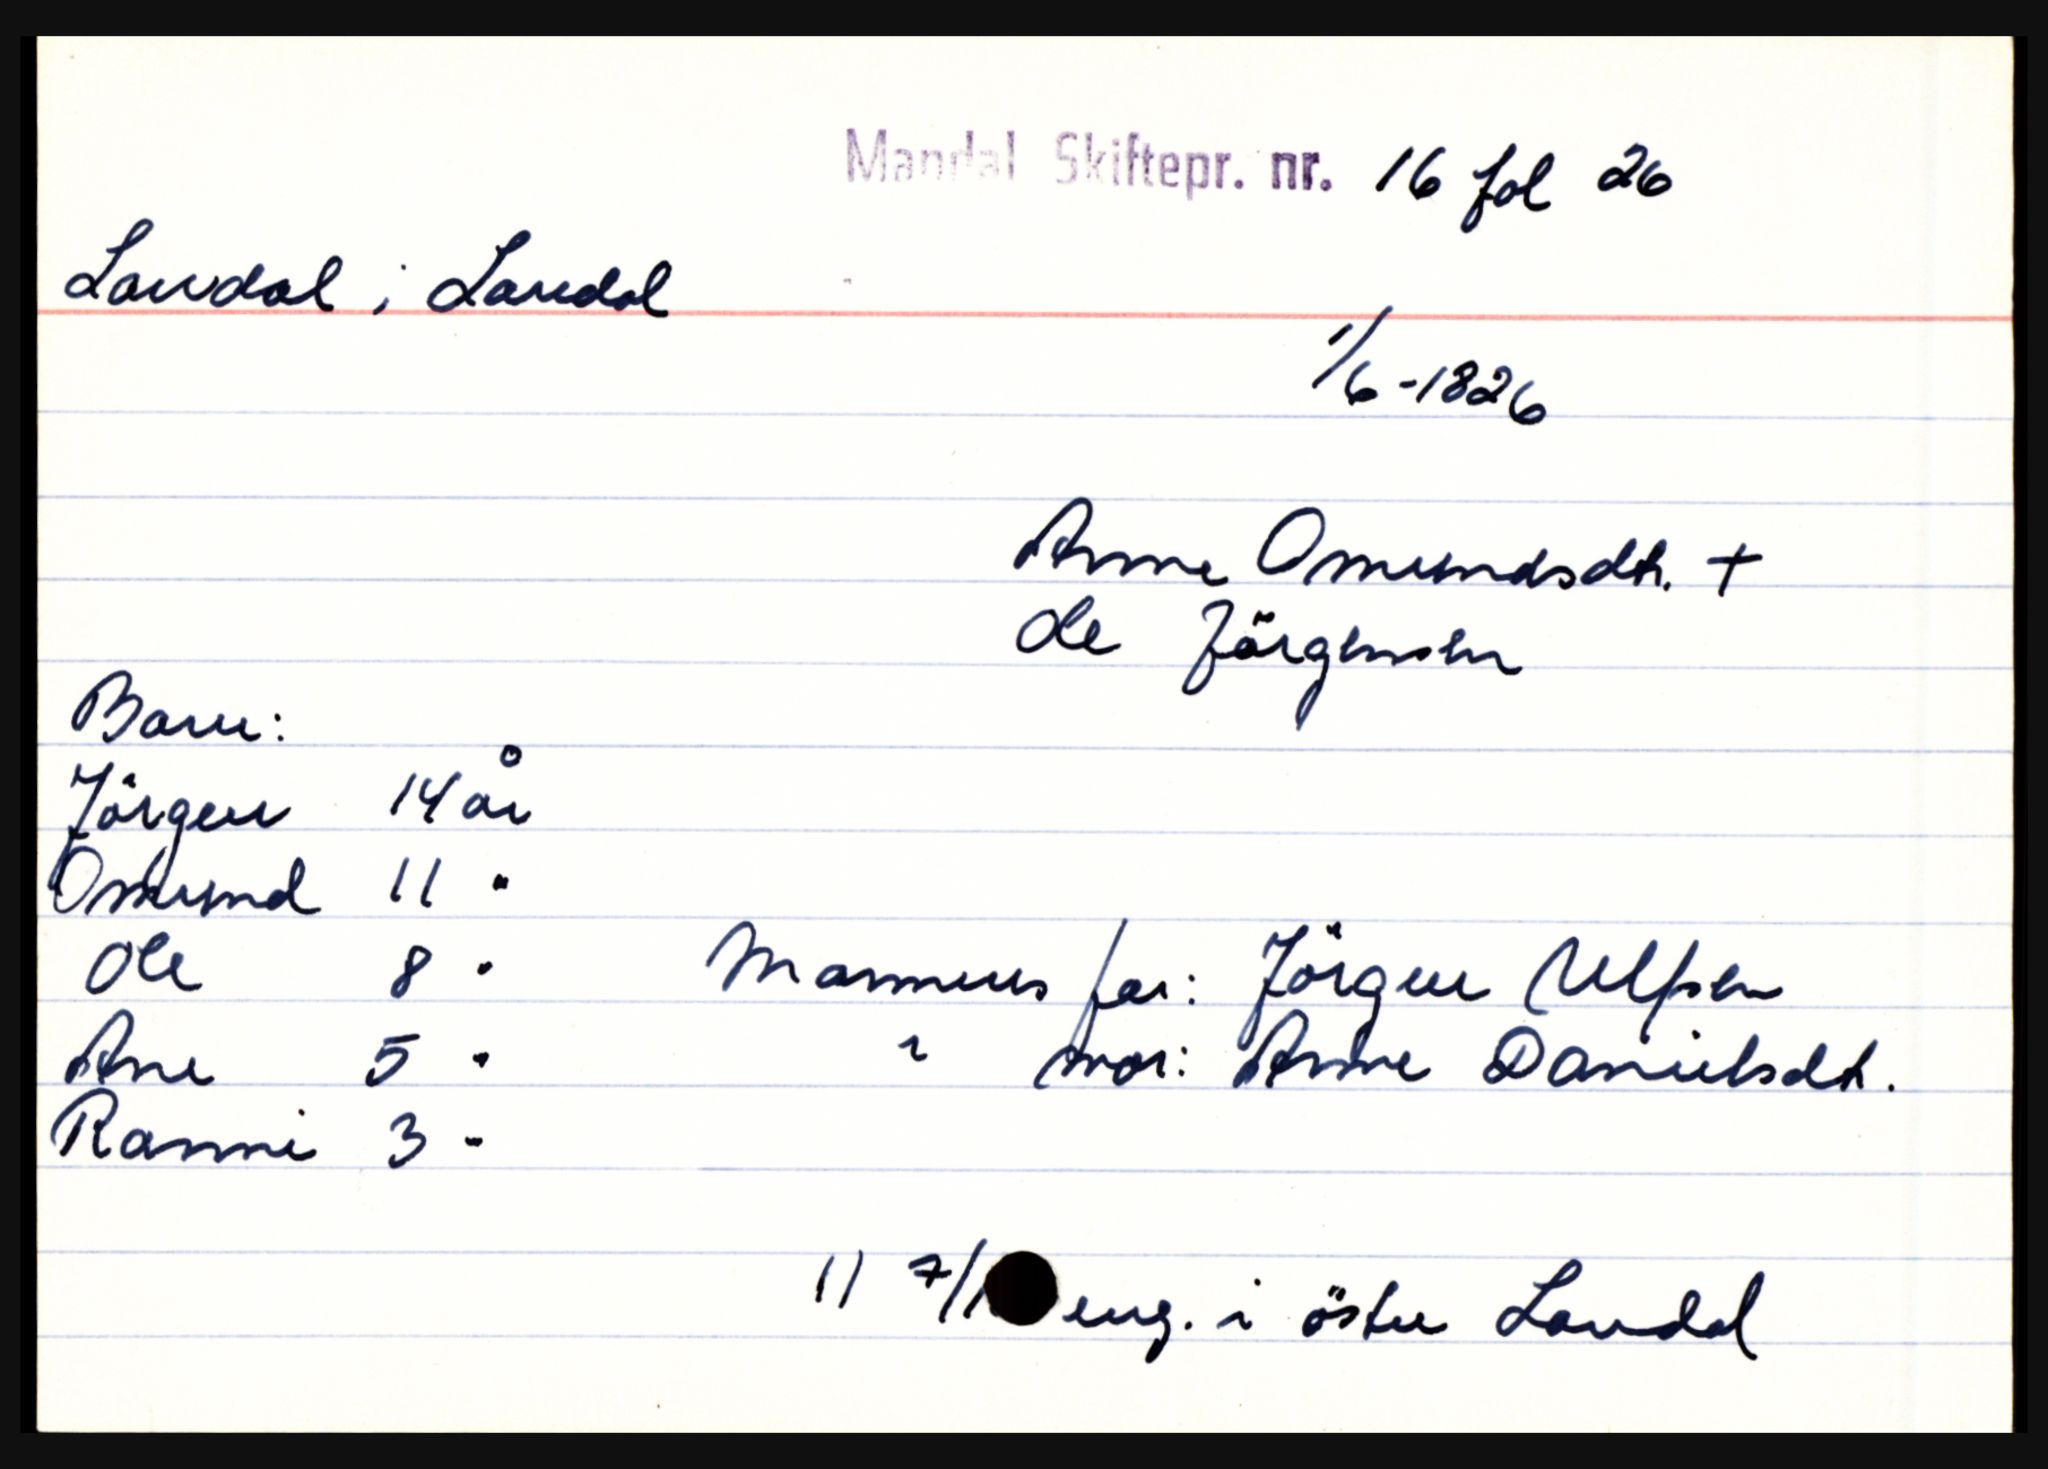 Mandal Skiftepr. nr. 16 fol 26
Laudal i Laudal
1/6-1826
Anne Omundsdtr. +
Ole Jörgensen
Barn:
Jörgen 14 år
Omund 11 "
Ole 8 " Mannens far: Jörgen Ulfsen
Ane 5 " " mor: Anne Danielsdtr.
Ranni 3 "
11 7/1 eng. i östre Laudal